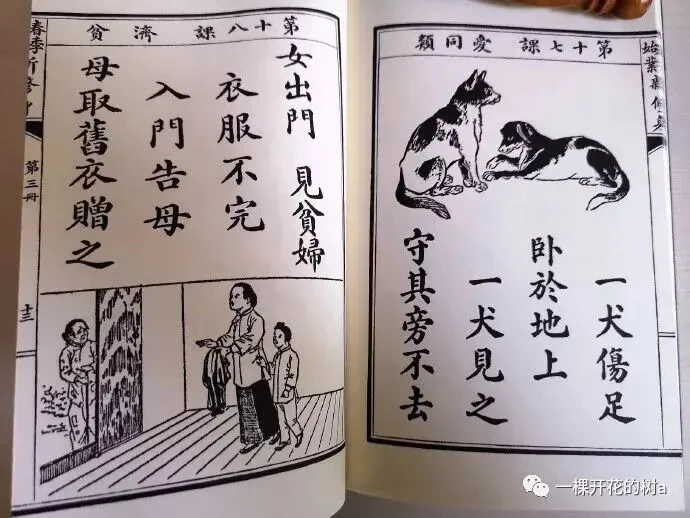 第十七課　愛同類
一犬傷足
臥於地上
一犬見之
守其旁不去
第十八課　濟貧
女出門　見貧婦
衣服不完
入門告母
母取舊衣贈之
第三冊
十三
一棵开花的树a